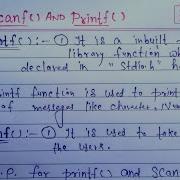 Scanf() AND Printf()
ntf():- ① It is a inbuilt
library function wh
declared in "Stdio.h" h
printf function is used to print
of messages like character,
nf():- ① It is used to take
the users.
.P. for printf() and Scan